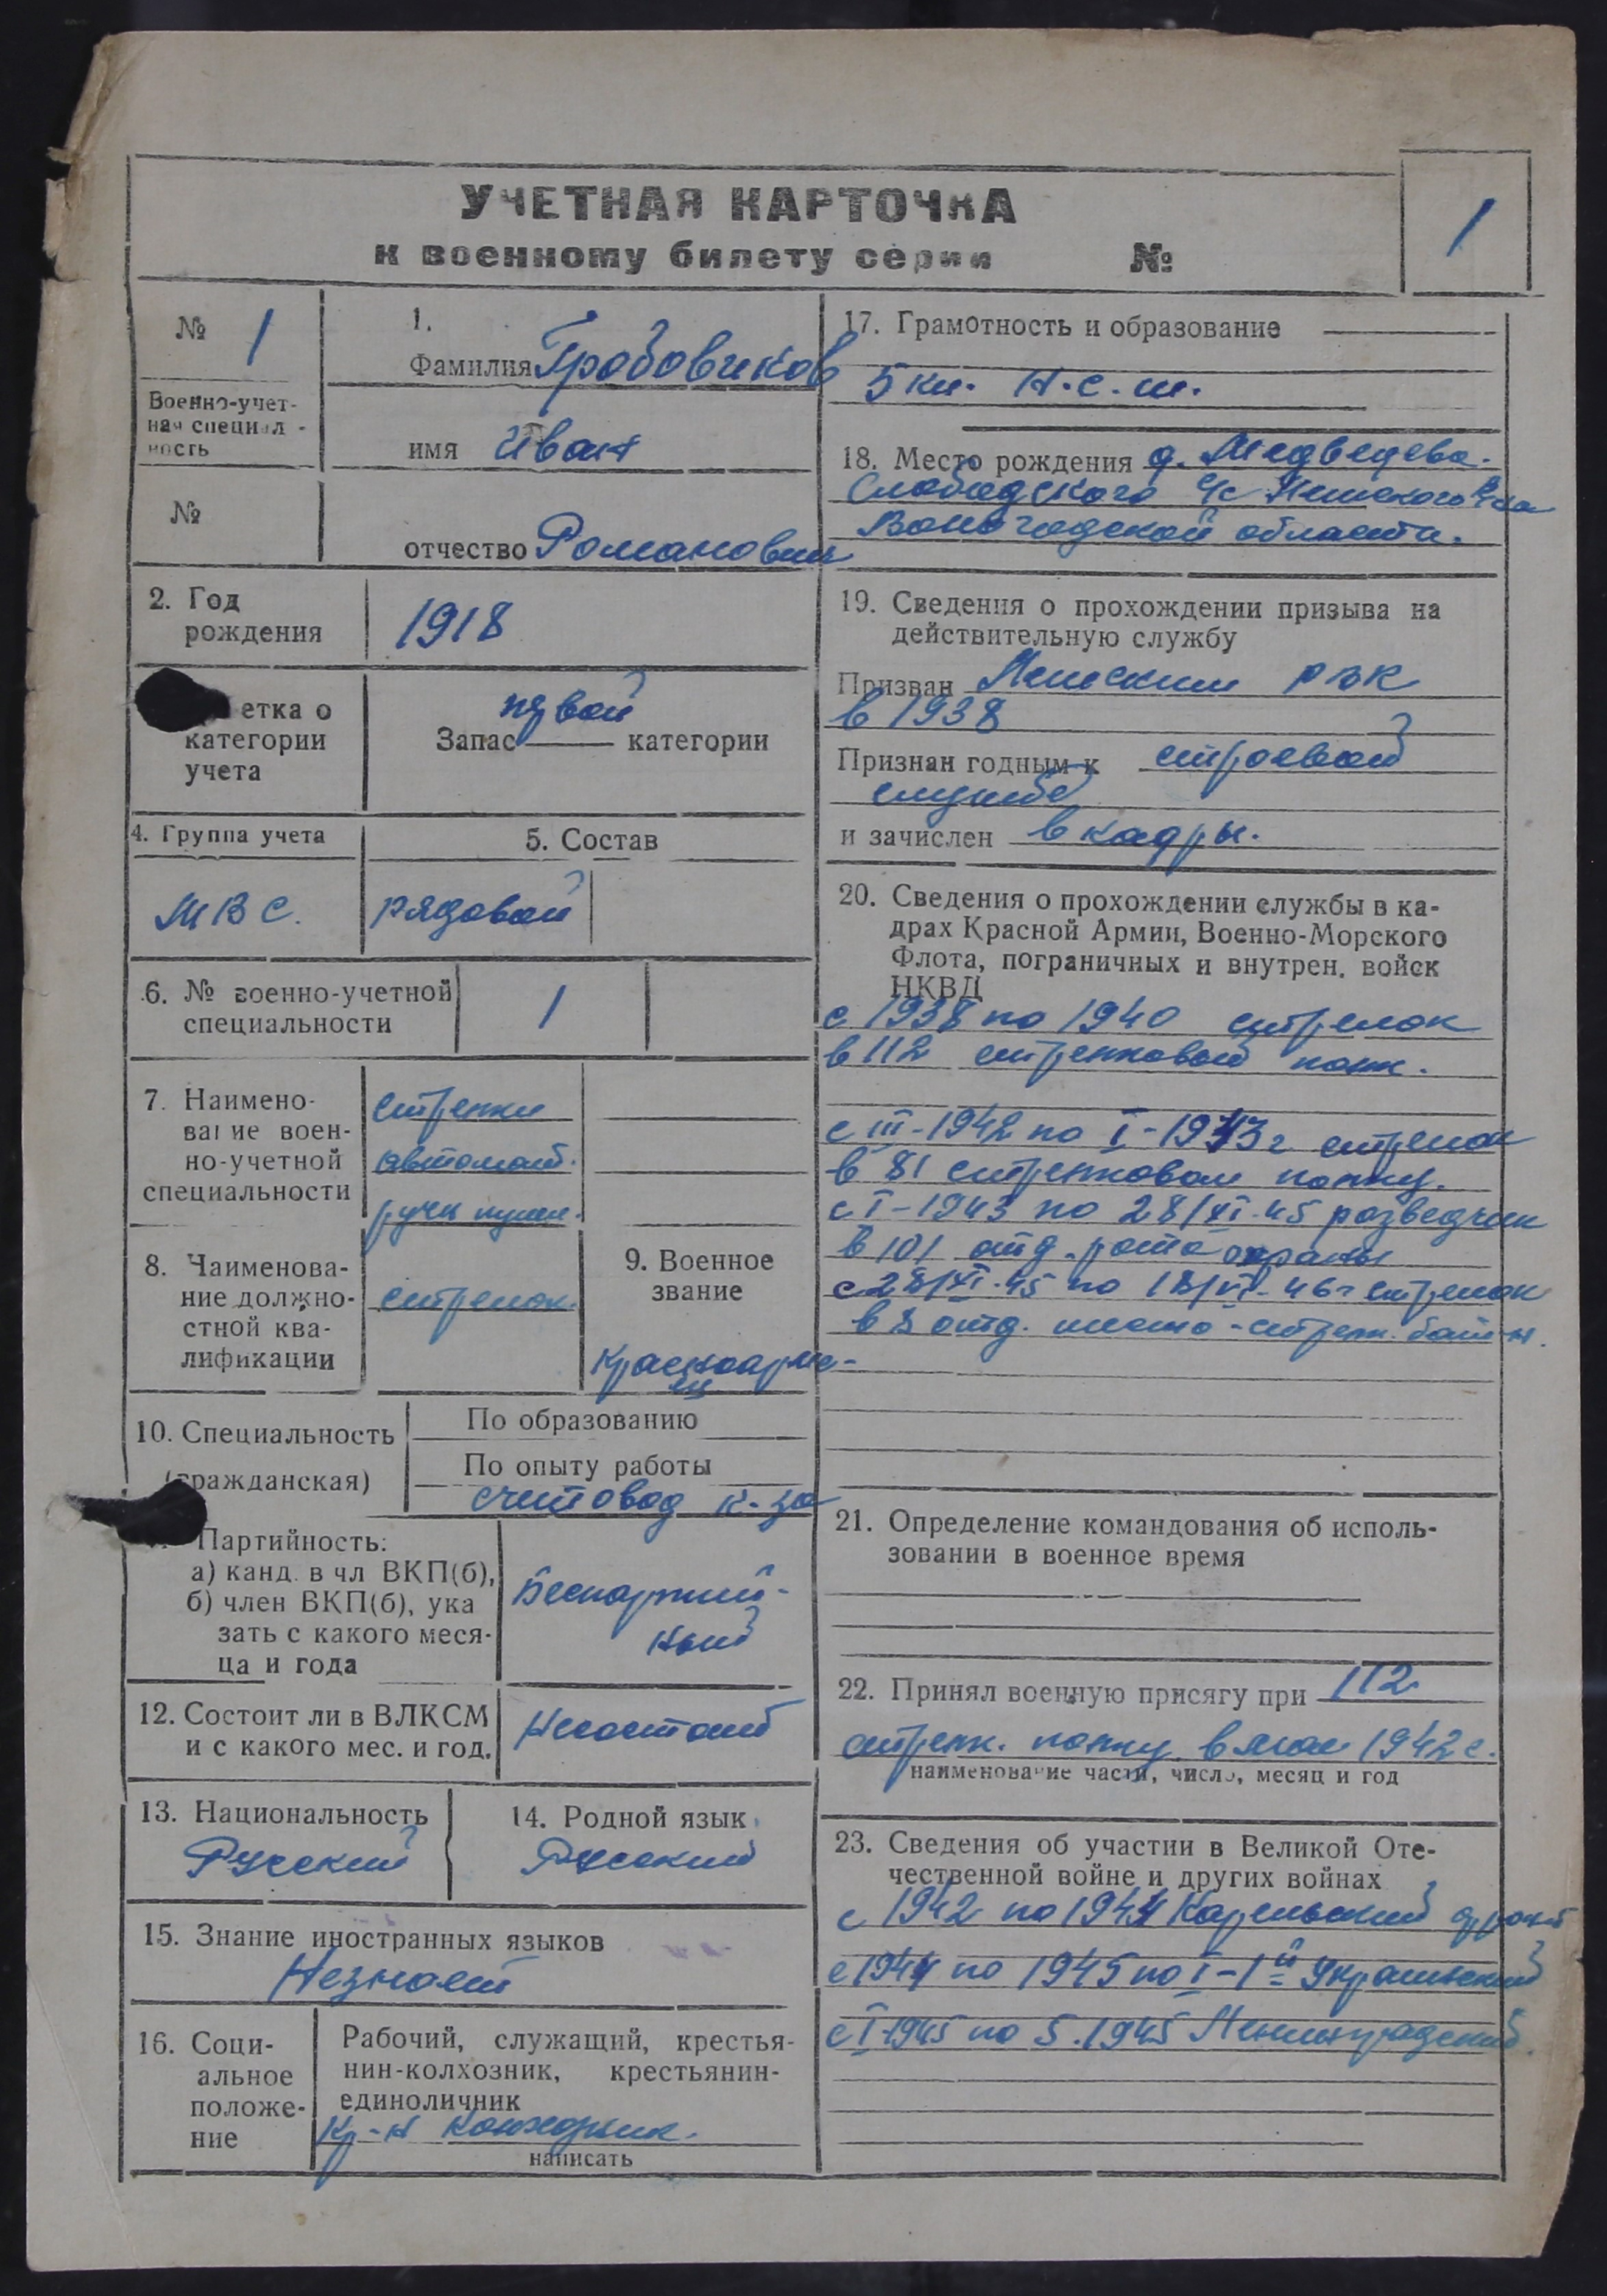 УЧЕТНАЯ КАРТОЧКА
к военному билету серии №
1
№ 1
Военно-учет-
ная специал-
ность
№
1.
Фамилия Гробовиков
имя Иван
отчество Романович
2. Год
рождения
1918
етка о
категории
учета
первой
Запас категории
4. Группа учета
МВС.
5. Состав
рядовой
6. № военно-учетной
специальности
1
7. Наимено-
вание воен-
но-учетной
специальности
стрелки
автомат.
ручн. пулем.
8. Наименова-
ние должно-
стной ква-
лификации
стрелок.
9. Военное
звание
Красноарме-
ец
10. Специальность
(гражданская)
По образованию
По опыту работы
счетовод к-за
Партийность:
а) канд. в чл ВКП(б),
б) член ВКП(б), ука
зать с какого меся-
ца и года
Беспартий-
ный
12. Состоит ли в ВЛКСМ
и с какого мес. и год.
Несостоит
13. Национальность
Русский
14. Родной язык
Русский
15. Знание иностранных языков
Незнает
16. Соци-
альное
положе-
ние
Рабочий, служащий, крестья-
нин-колхозник, крестьянин-
единоличник
Кр-н колхозник.
написать
17. Грамотность и образование
5 кл. Н.с.ш.
18. Место рождения д. Медведева.
Слободского с/с
Вологодской области.
19. Сведения о прохождении призыва на
действительную службу
Призван РВК
в 1938
Признан годным к строевой
службе
и зачислен в кадры.
20. Сведения о прохождении службы в ка-
драх Красной Армии, Военно-Морского
Флота, пограничных и внутрен. войск
НКВД
с 1938 по 1940 стрелок
в 112 стрелковый полк.
с III-1942 по I-1943 г стрелок
в 81 стрелковом полку.
с I-1943 по 28/XI-45 разведчик
в 101 отд. рота охраны
с 28/XI-45 по 18/VI-46 г стрелок
в 8 отд. стрелк. бат-н.
21. Определение командования об исполь-
зовании в военное время
22. Принял военную присягу при 112
стрелк. полку в мае 1942 г.
наименование части, число, месяц и год
23. Сведения об участии в Великой Оте-
чественной войне и других войнах
с 1942 по 1944 Карельский фронт
с 1944 по 1945 по I - 1й Украинский
с I-1945 по 5.1945 Ленинградский.